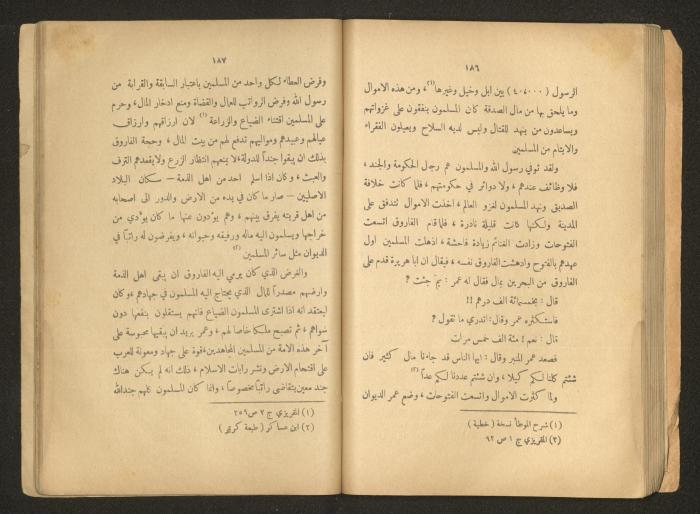 ١٨٦
الرسول (٤٠،٠٠٠) بين ابل وخيل وغيرها(١)، ومن هذه الاموال
وما يلحق بها من مال الصدقة كان المسلمون ينفقون على غزواتهم
ويساعدون من ينهد للقتال وليس لديه السلاح ويعيلون الفقراء
والايتام من المسلمين
ولقد توفي رسول الله والمسلمون هم رجال الحكومة والجند،
فلا وظائف عندهم، ولا دوائر في حكومتهم، فلما كانت خلافة
الصديق ونهد المسلمون لغزو العالم، اخذت الاموال تتدفق على
المدينة ولكنها كانت قليلة نادرة، فلما قام الفاروق اتسعت
الفتوحات وزادت الغنائم زيادة فاحشة، اذهلت المسلمين اول
عهدهم بالفتوح وادهشت الفاروق نفسه، فيقال ان ابا هريرة قدم على
الفاروق من البحرين بمال فقال له عمر: بمَ جئت؟
قال: بخمسمائة الف درهم!!
فاستكثره عمر وقال: اتدري ما تقول؟
قال: نعم! مئة الف خمس مرات
فصعد عمر المنبر وقال: ايها الناس قد جاءنا مال كثير فان
شئتم كلنا لكم كيلا، وان شئتم عددنا لكم عداً(٢)
ولما كثرت الاموال واتسعت الفتوحات، وضع عمر الديوان
(١) شرح الموطأ نسخة (خطية)
(٢) المقريزي ج ١ ص ٩٢
١٨٧
وفرض العطاء لكل واحد من المسلمين باعتبار السابقة والقرابة من
رسول الله وفرض الرواتب للعمال والقضاة ومنع ادخار المال، وحرم
على المسلمين اقتناء الضياع والزراعة(١) لان ارزاقهم وارزاق
عيالهم وعبيدهم ومواليهم تدفع لهم من بيت المال، وحجة الفاروق
بذلك ان يبقوا جنداً للدولة، لا يمنعهم انتظار الزرع ولا يقعدهم الترف
والعبث، وكان اذا اسلم احد من اهل الذمة – سكان البلاد
الاصليين – صار ما كان في يده من الارض والدور الى اصحابه
من اهل قريته يفرق بينهم، وهم يؤدون عنها ما كان يؤدي من
خراجها ويسلمون اليه ماله ورقيقه وحيوانه، ويفرضون له راتباً في
الديوان مثل سائر المسلمين(٢)
والغرض الذي كان يرمي اليه الفاروق ان يبقى اهل الذمة
وارضهم مصدراً للمال الذي يحتاج اليه المسلمون في جهادهم، وكان
يعتقد انه اذا اشترى المسلمون الضياع فانهم يستقلون بنفعها دون
سواهم، ثم تصبح ملكاً خاصا لهم، وعمر يريد ان يبقيها محبوسة على
آخر هذه الامة من المسلمين المجاهدين، قوة على جهاد ومعونة للعرب
على اقتحام الارض ونشر رايات الاسلام، ذلك انه لم يكن هناك
جند معين يتقاضى راتباً مخصوصاً، وانما كان المسلمون كلهم جند الله
(١) المقريزي ج ٢ ص ٢٥٩
(٢) ابن عساكر (طبعة كريمر)